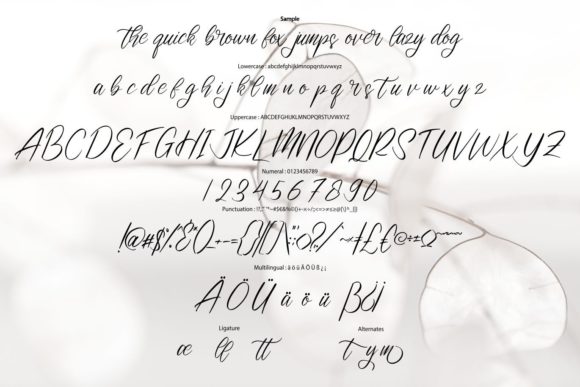 Sample
the quick brown fox jumps over lazy dog
Lowercase : abcdefghijklmnopqrstuvwxyz
a b c d e f g h i j k l m n o p q r s t u v w x y z
Uppercase : ABCDEFGHIJKLMNOPQRSTUVWXYZ
ABCDEFGHIJKLMNOPQRSTUVWXYZ
Numeral : 0123456789
1234567890
Punctuation :
Multilingual : ä ö ü Ä Ö Ü ß ¿ ¡
Ä Ö Ü ä ö ü ß ¿ ¡
Ligature Alternates
æ ll tt t y m